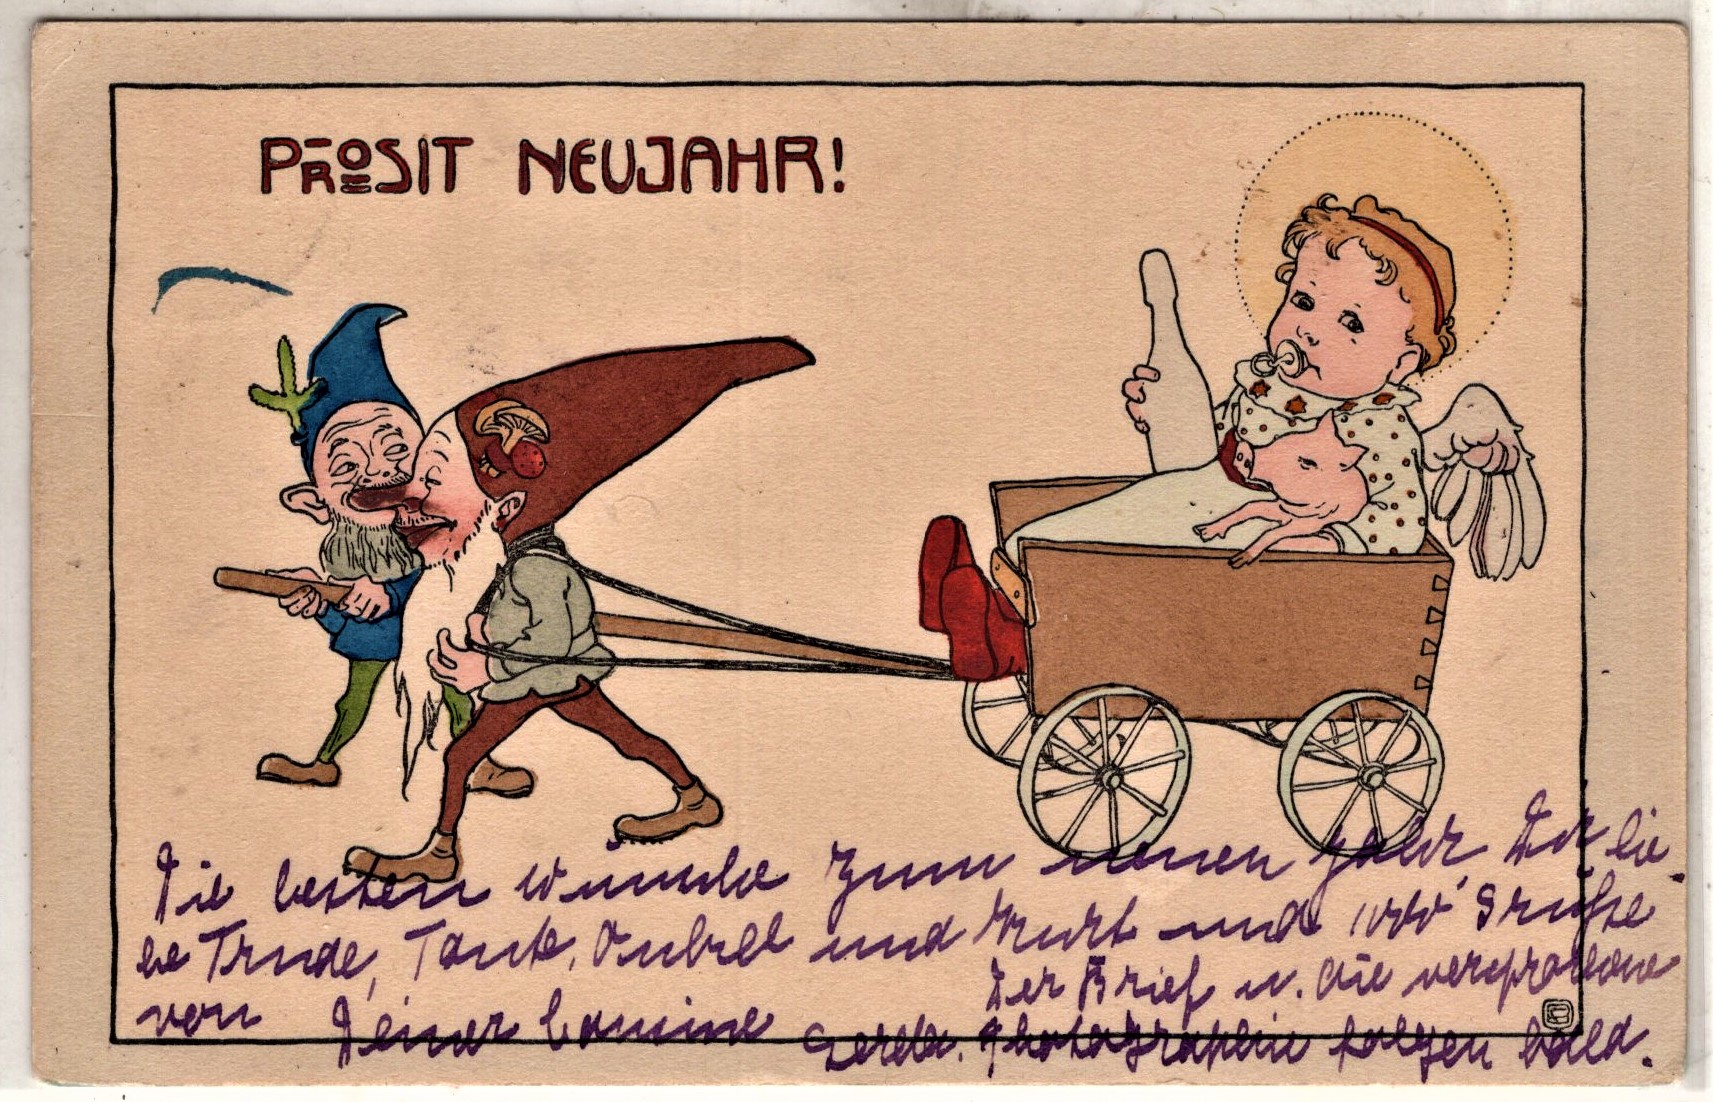 PROSIT NEUJAHR!
Die besten Wünsche zum neuen Jahr, Dir lie-
be Trude, Tante, Onkel und Kurt und Grüße
von Deiner Cousine
Der Brief u. die versprochene
Photographie folgen bald.